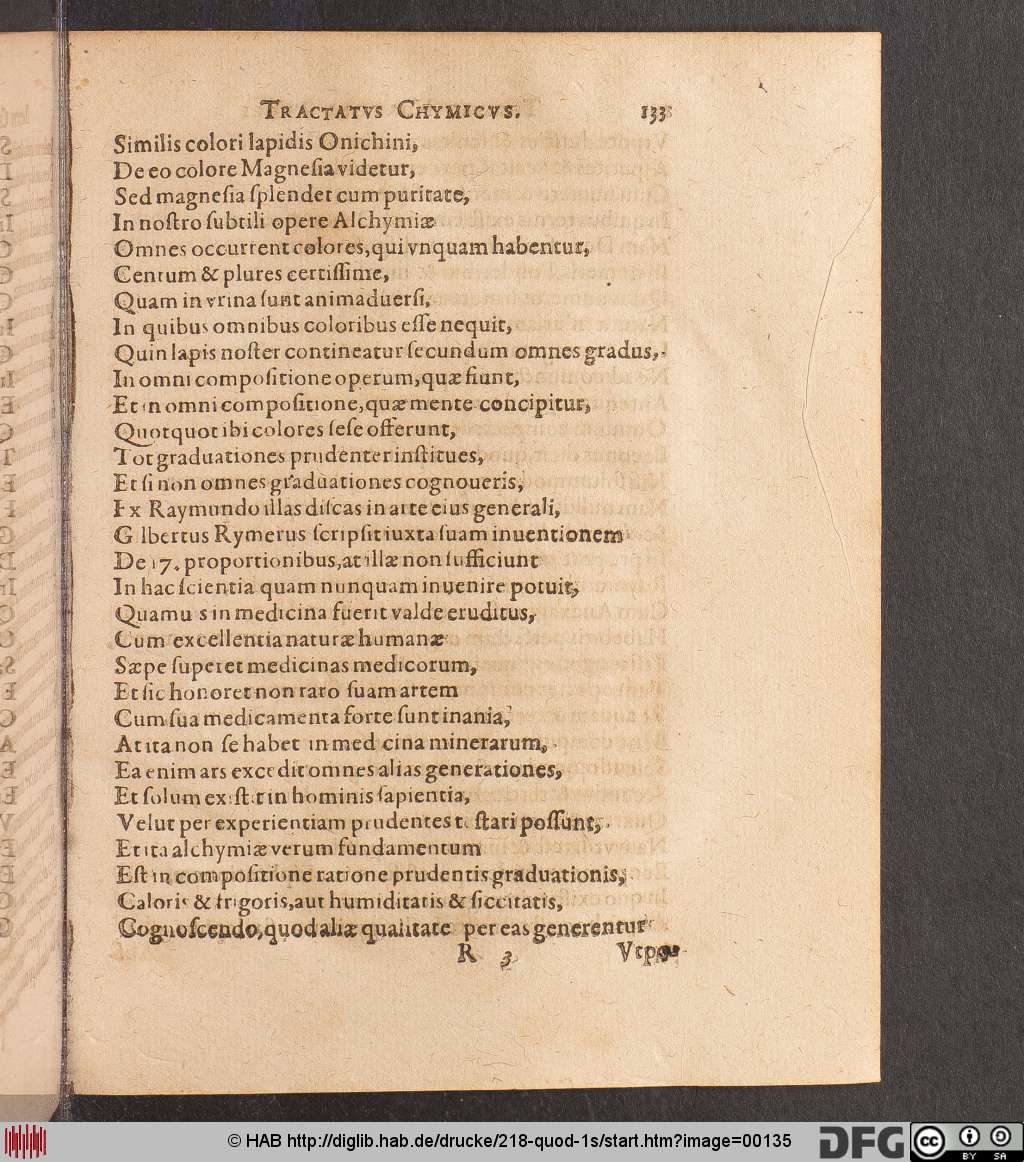 TRACTATVS CHYMICVS. 133
Similis colori lapidis Onichini,
De eo colore Magneſia videtur,
Sed magneſia ſplendet cum puritate,
In noſtro ſubtili opere Alchymiæ
Omnes occurrent colores, qui vnquam habentur,
Centum & plures certiſſime,
Quam in vrina ſunt animaduerſi,
In quibus omnibus coloribus eſſe nequit,
Quin lapis noſter contineatur ſecundum omnes gradus,
In omni compoſitione operum, quæ fiunt,
Et in omni compoſitione, quæ mente concipitur,
Quotquot ibi colores ſeſe offerunt,
Tot graduationes prudenter inſtitues,
Et ſi non omnes graduationes cognoueris,
Ex Raymundo illas diſcas in arte eius generali,
Gilbertus Rymerus ſcripſit iuxta ſuam inuentionem
De 17. proportionibus, at illæ non ſufficiunt
In hac ſcientia quam nunquam inuenire potuit,
Quamuis in medicina fuerit valde eruditus,
Cum excellentia naturæ humanæ
Sæpe ſuperet medicinas medicorum,
Et ſic honoret non raro ſuam artem
Cum ſua medicamenta forte ſunt inania,
At ita non ſe habet in medicina minerarum,
Ea enim ars excedit omnes alias generationes,
Et ſolum exiſtit in hominis ſapientia,
Velut per experientiam prudentes teſtari poſſunt,
Et ita alchymiæ verum fundamentum
Eſt in compoſitione ratione prudentis graduationis,
Caloris & frigoris, aut humiditatis & ſiccitatis,
Cognoſcendo, quod aliæ qualitate per eas generentur
R 3
© HAB http://diglib.hab.de/drucke/218-quod-1s/start.htm?image=00135 DFG cc BY SA